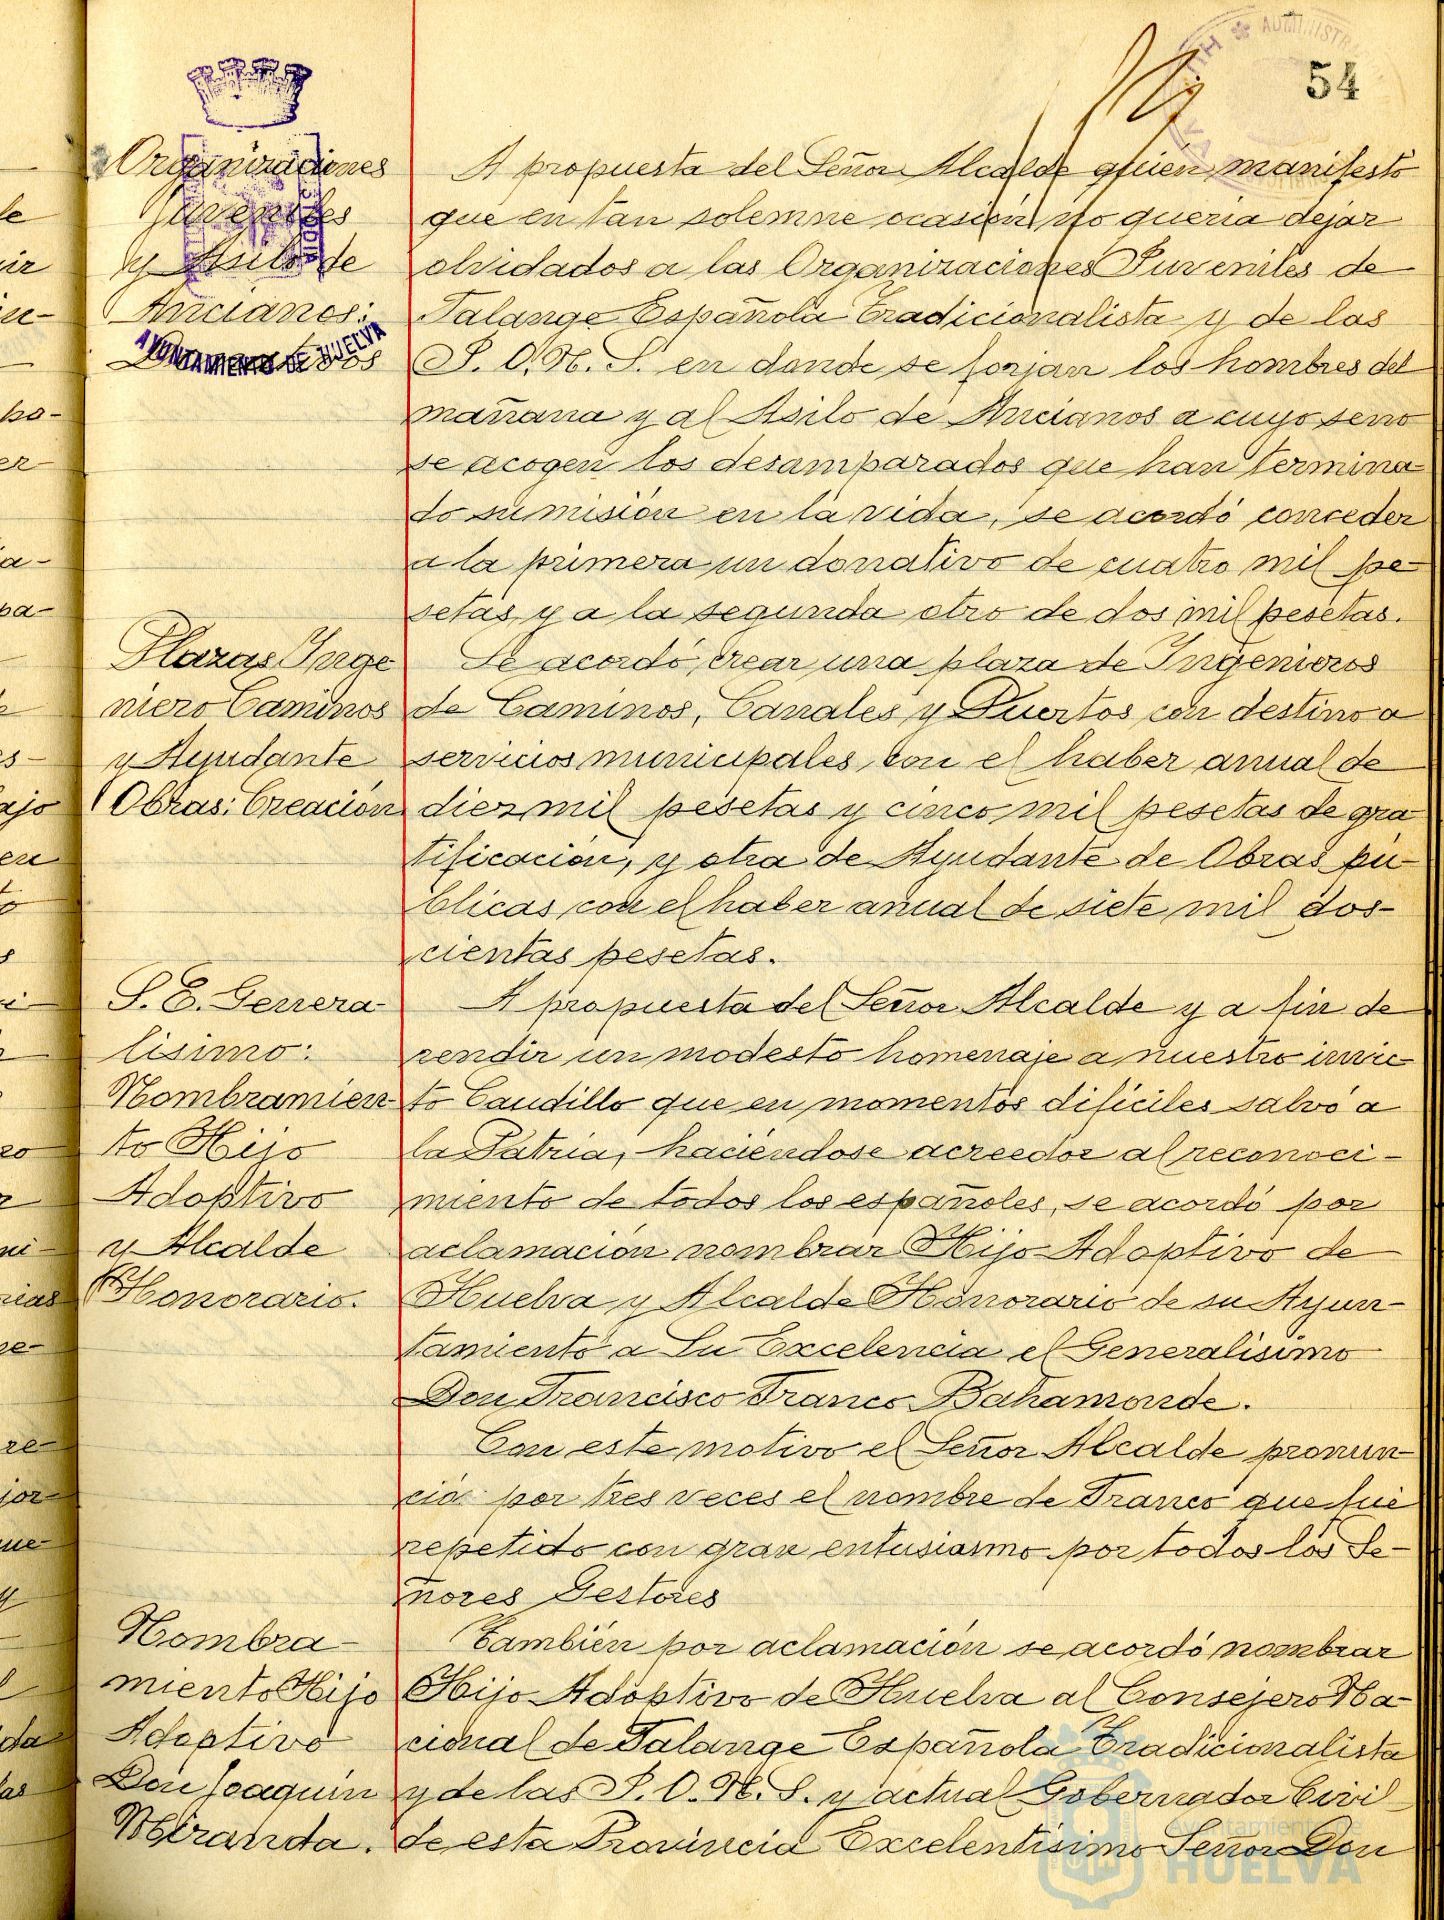 54
Organizaciones
Juveniles
y Asilo de
Ancianos:
Donativos
AYUNTAMIENTO DE HUELVA
A propuesta del Señor Alcalde quién manifestó
que en tan solemne ocasión no quería dejar
olvidados a las Organizaciones Juveniles de
Falange Española Tradicionalista y de las
J. O. N. S. en donde se forjan los hombres del
mañana y al Asilo de Ancianos a cuyo seno
se acogen los desamparados que han termina-
do su misión en la vida, se acordó conceder
a la primera un donativo de cuatro mil pe-
setas y a la segunda otro de dos mil pesetas.
Plazas Inge
niero Caminos
y Ayudante
Obras: Creación
Se acordó crear una plaza de Ingenieros
de Caminos, Canales y Puertos con destino a
servicios municipales, con el haber anual de
diez mil pesetas y cinco mil pesetas de gra
tificación, y otra de Ayudante de Obras pú-
blicas con el haber anual de siete mil dos-
cientas pesetas.
S. E. Genera-
lísimo:
Nombramien-
to Hijo
Adoptivo
y Alcalde
Honorario.
A propuesta del Señor Alcalde y a fin de
rendir un modesto homenaje a nuestro invic-
to Caudillo que en momentos difíciles salvó a
la Patria, haciéndose acreedor al reconoci-
miento de todos los españoles, se acordó por
aclamación nombrar Hijo Adoptivo de
Huelva y Alcalde Honorario de su Ayun-
tamiento a Su Excelencia el Generalísimo
Don Francisco Franco Bahamonde.
Con este motivo el Señor Alcalde pronun-
ció por tres veces el nombre de Franco que fué
repetido con gran entusiasmo por todos los Se-
ñores Gestores
Nombra-
miento Hijo
Adoptivo
Don Joaquín
Miranda.
También por aclamación se acordó nombrar
Hijo Adoptivo de Huelva al Consejero Na-
cional de Falange Española Tradicionalista
y de las J. O. N. S. y actual Gobernador Civil
de esta Provincia Excelentísimo Señor Don
Ayuntamiento de
HUELVA